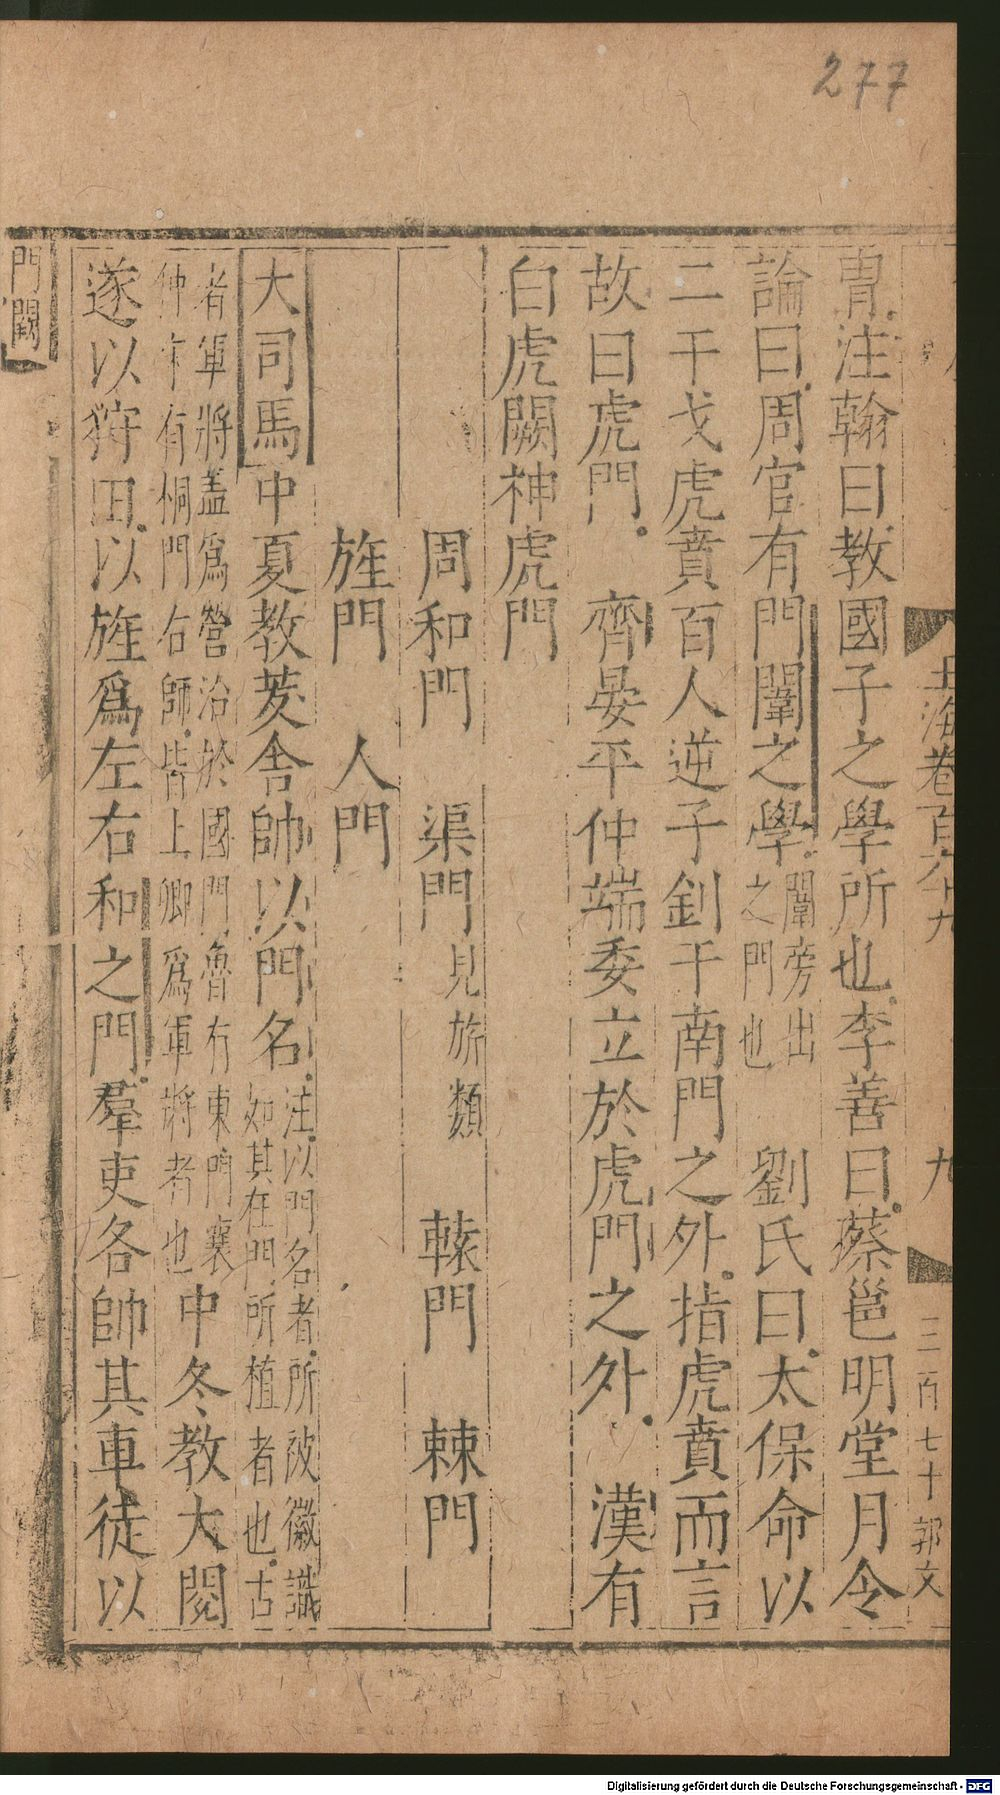 277
玉海卷百六十九
九
三百七十 郭文
胄注翰曰教國子之學所也李善曰蔡邕明堂月令
論曰周官有門闈之學闈旁出之門也 劉氏曰太保命以
二干戈虎賁百人逆子釗于南門之外指虎賁而言
故曰虎門 齊晏平仲端委立於虎門之外 漢有
白虎闕神虎門
周和門 渠門見旂類 轅門 棘門
旌門 人門
大司馬中夏教茇舍帥以門名注以門名者所被徽識如其在門所植者也古
者軍將蓋為營治於國門魯有東門襄仲宋有桐門右師皆上卿為軍將者也中冬教大閱
遂以狩田以旌為左右和之門羣吏各帥其車徒以
門闕
Digitalisierung gefördert durch die Deutsche Forschungsgemeinschaft - DFG